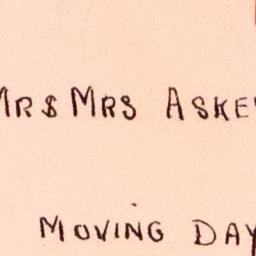 MR & MRS ASKE
MOVING DAY